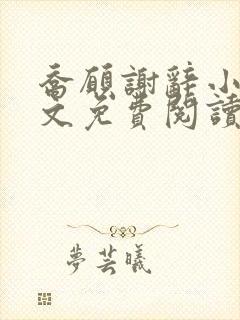 喬願謝辭小
文免費閱讀
夢芸曦